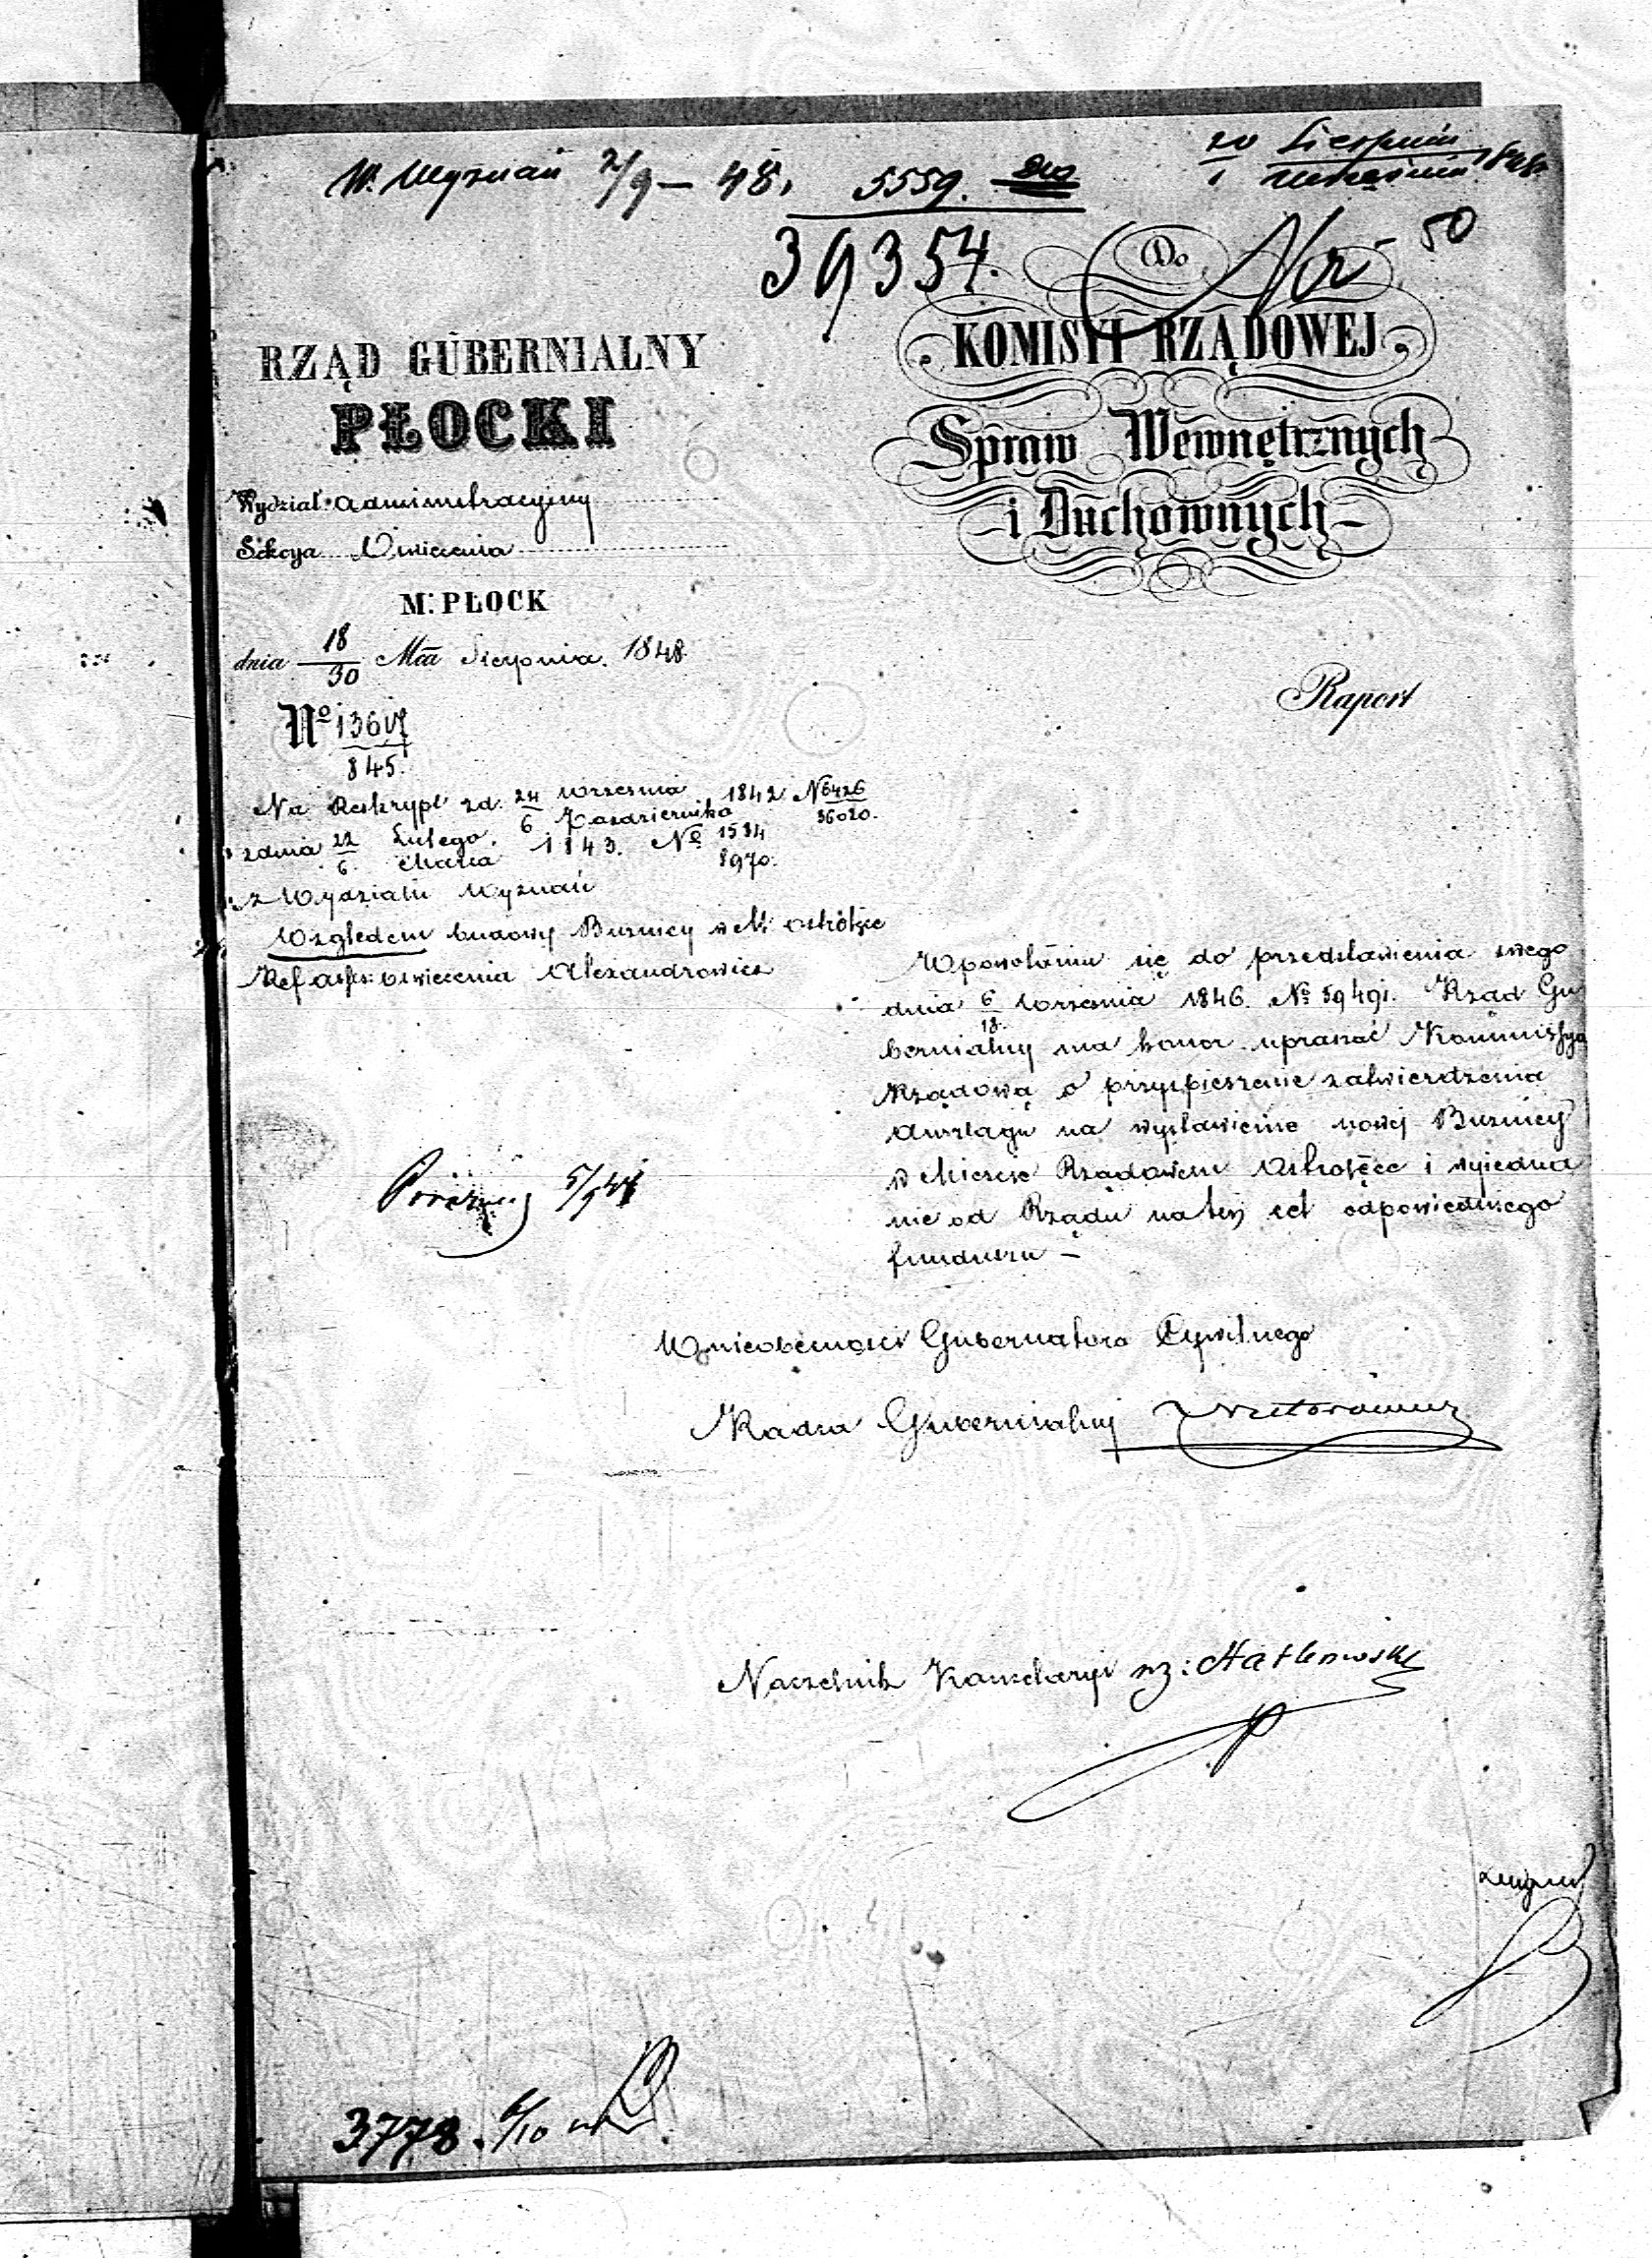 W. Wyznań 2/9 – 48. 5559.
20 Sierpnia
1 Września 1848
39354.
50
Do
KOMISYI RZĄDOWEJ
Spraw Wewnętrznych
i Duchownych
Raport
RZĄD GUBERNIALNY
PŁOCKI
Wydział Administracyjny
Sekcya Oświecenia
M. PŁOCK
dnia 18/30 Mca Sierpnia 1848
No
845.
Na Reskrypt zd. 24 Września / 6 Października 1842 N 6426/36020.
z dnia 22 Lutego / 6 Marca 1843. No 1534/8970.
z Wydziału Wyznań
Względem budowy Buznicy w M. Ostrołęce
Ref Oświecenia Alexandrowicz
W powołaniu się do przedstawienia swego
dnia 6/18 Września 1846. No 59491. Rząd Gu
bernialny ma honor upraszać Kommissyą
Rządową o przyspieszenie zatwierdzenia
Anszlagu na wystawienie nowej Buznicy
w Mieście Rządowem Ostrołęce i wyjedna
nie od Rządu na ten cel odpowiedniego
funduszu –
W nieobecności Gubernatora Cywilnego
Radca Gubernialny
Naczelnik Kancelaryi wz:
3778. 6/10